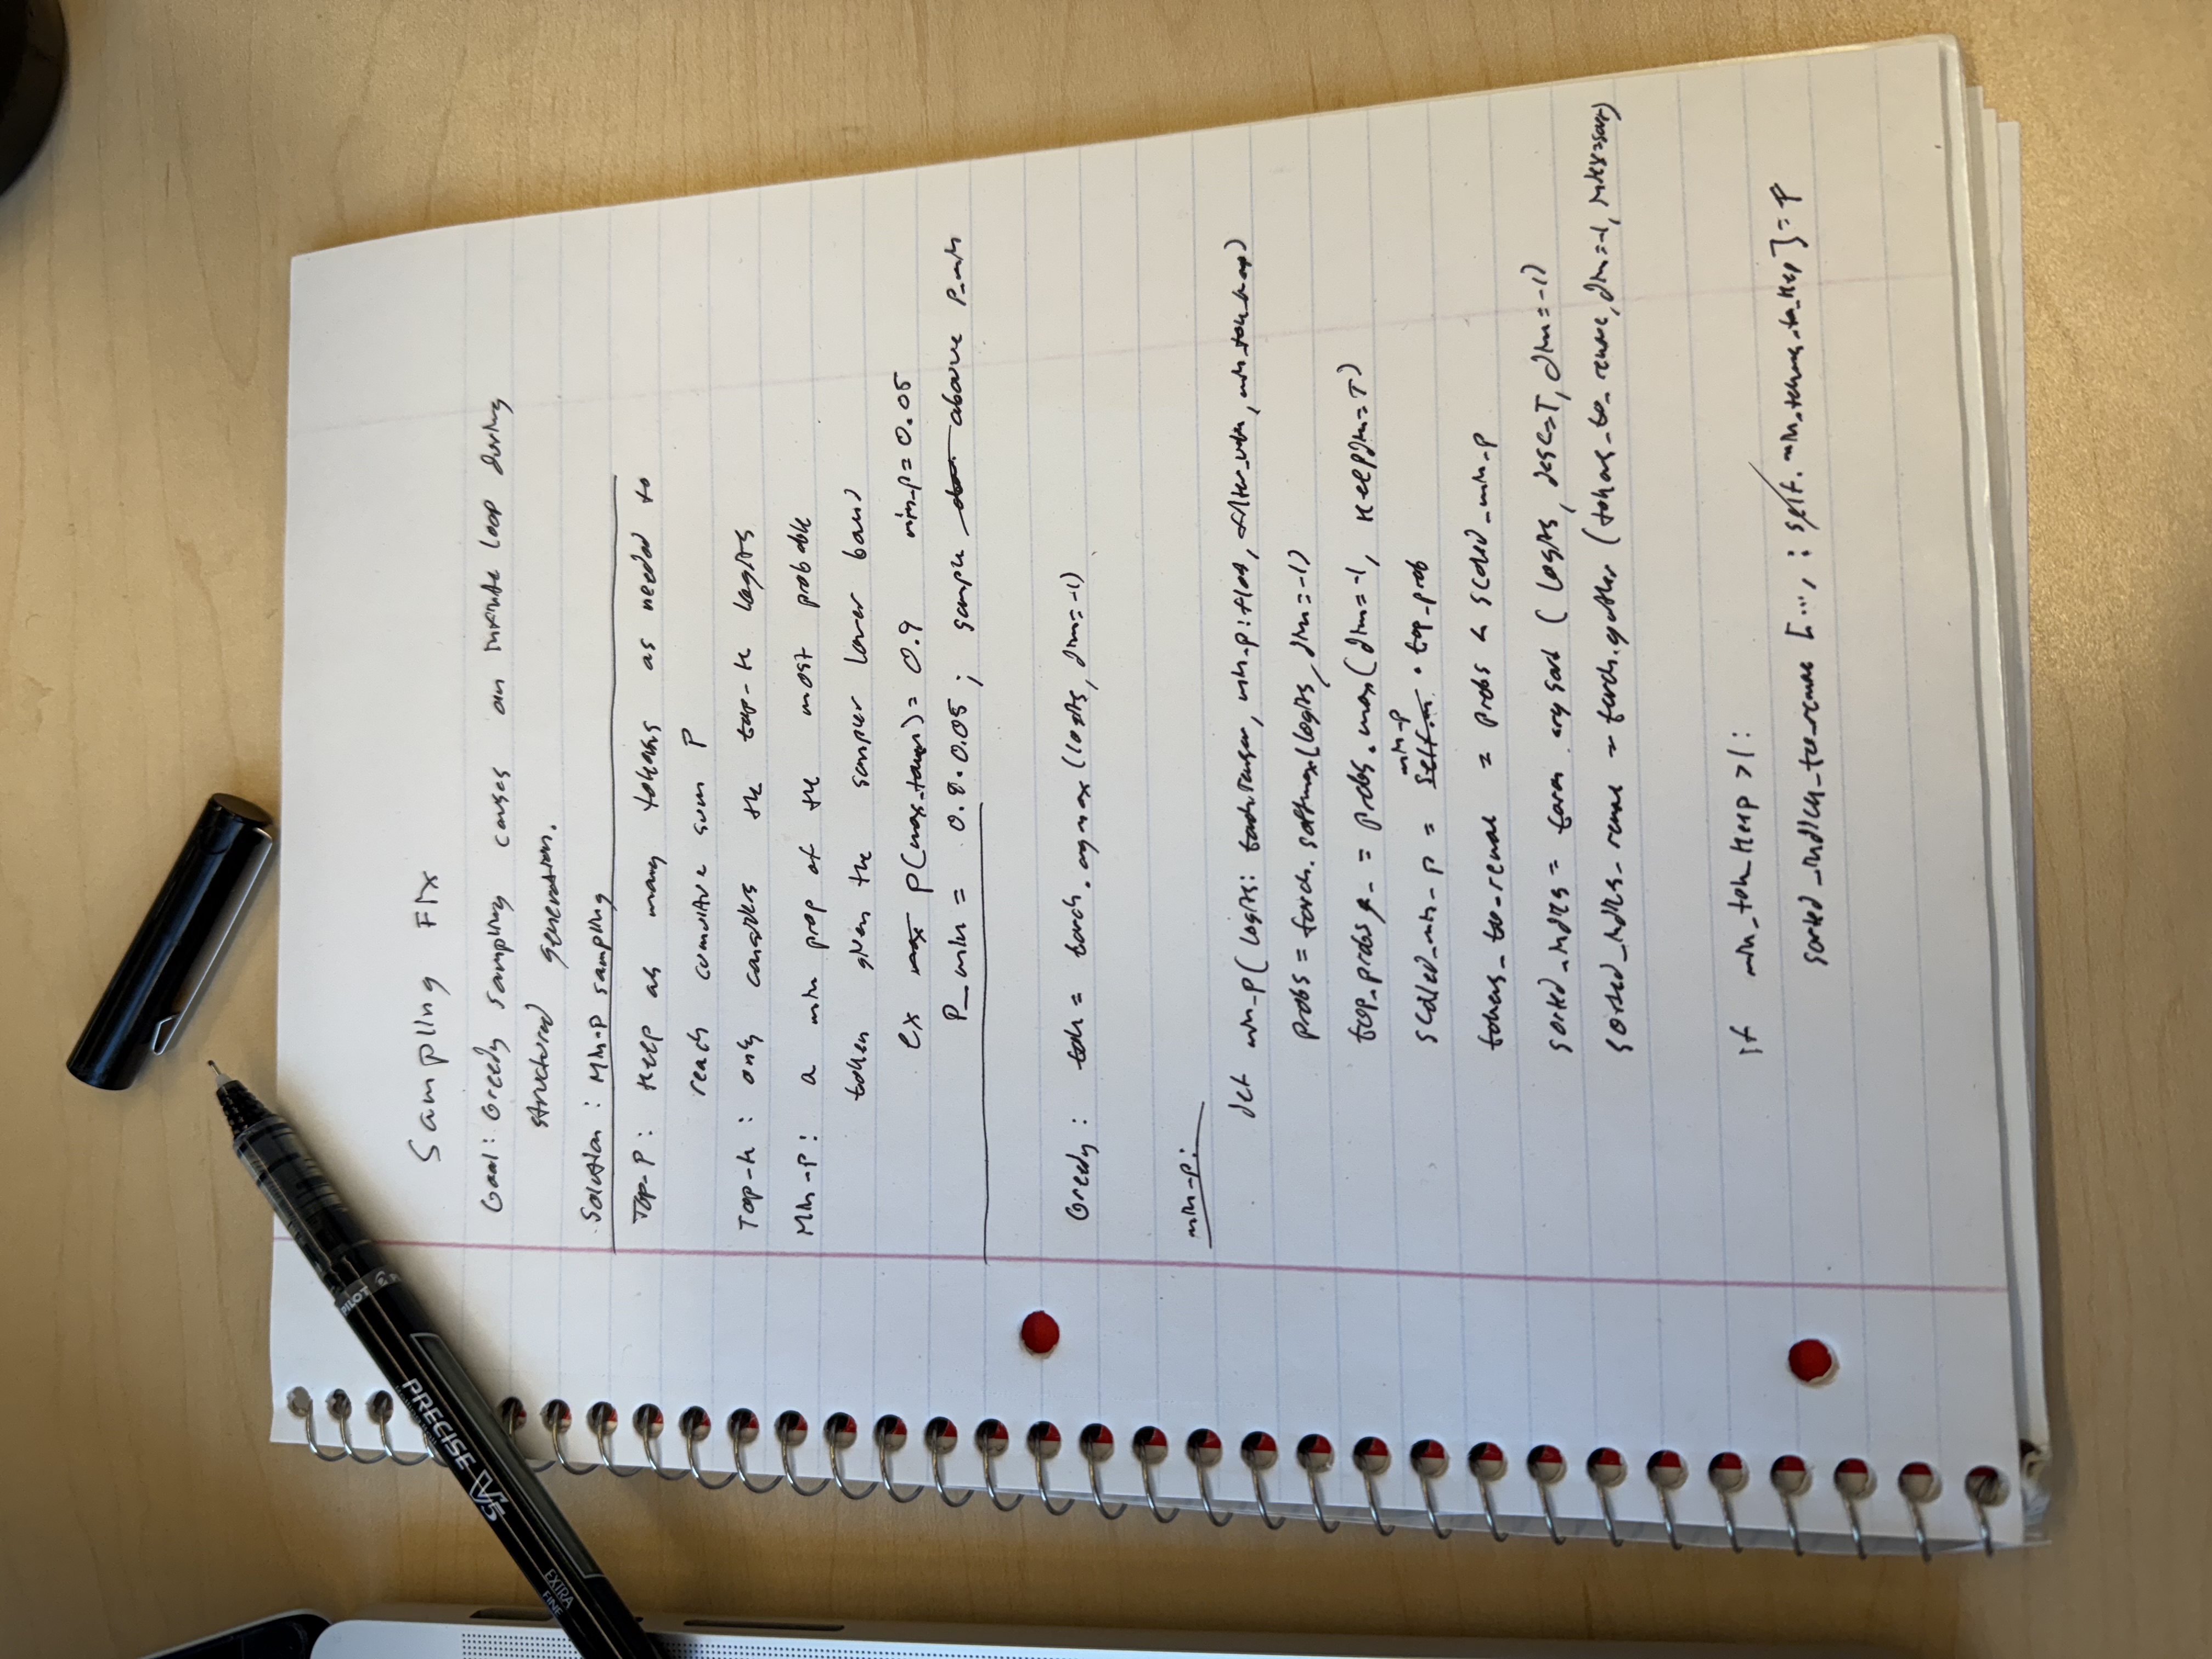 PILOT
PRECISE V5
EXTRA
FINE
Sampling Fix
Goal: Greedy sampling causes an infinite loop during
structured generation.
Solution: Min-P sampling
Top-P: Keep as many tokens as needed to
reach cumultive sum P
Top-k: only considers the top-k logits
Min-P: a min prop of the most probable
token given the sampler lower bound
ex max p(max_token)= 0.9 min_p=0.05
P_min = 0.9·0.05; sample above P_min
Greedy: tok = torch.argmax(logits, dim=-1)
min-p:
def min_p(logits: torch.Tensor, min_p: float, filter_value, min_tok_keep)
probs = torch.softmax(logits, dim=-1)
top_probs, _ = probs.max(dim=-1, keepdim=T)
min_p
scaled_min_p = self.m · top_prob
tokens_to_remove = probs < scaled_min_p
sorted_indices = torch.argsort(logits, desc=T, dim=-1)
sorted_indices_remove = torch.gather(tokens_to_remove, dim=-1, index=sort)
if min_tok_keep >1:
sorted_indices_to_remove [..., : self.min_tokens_to_keep] = F